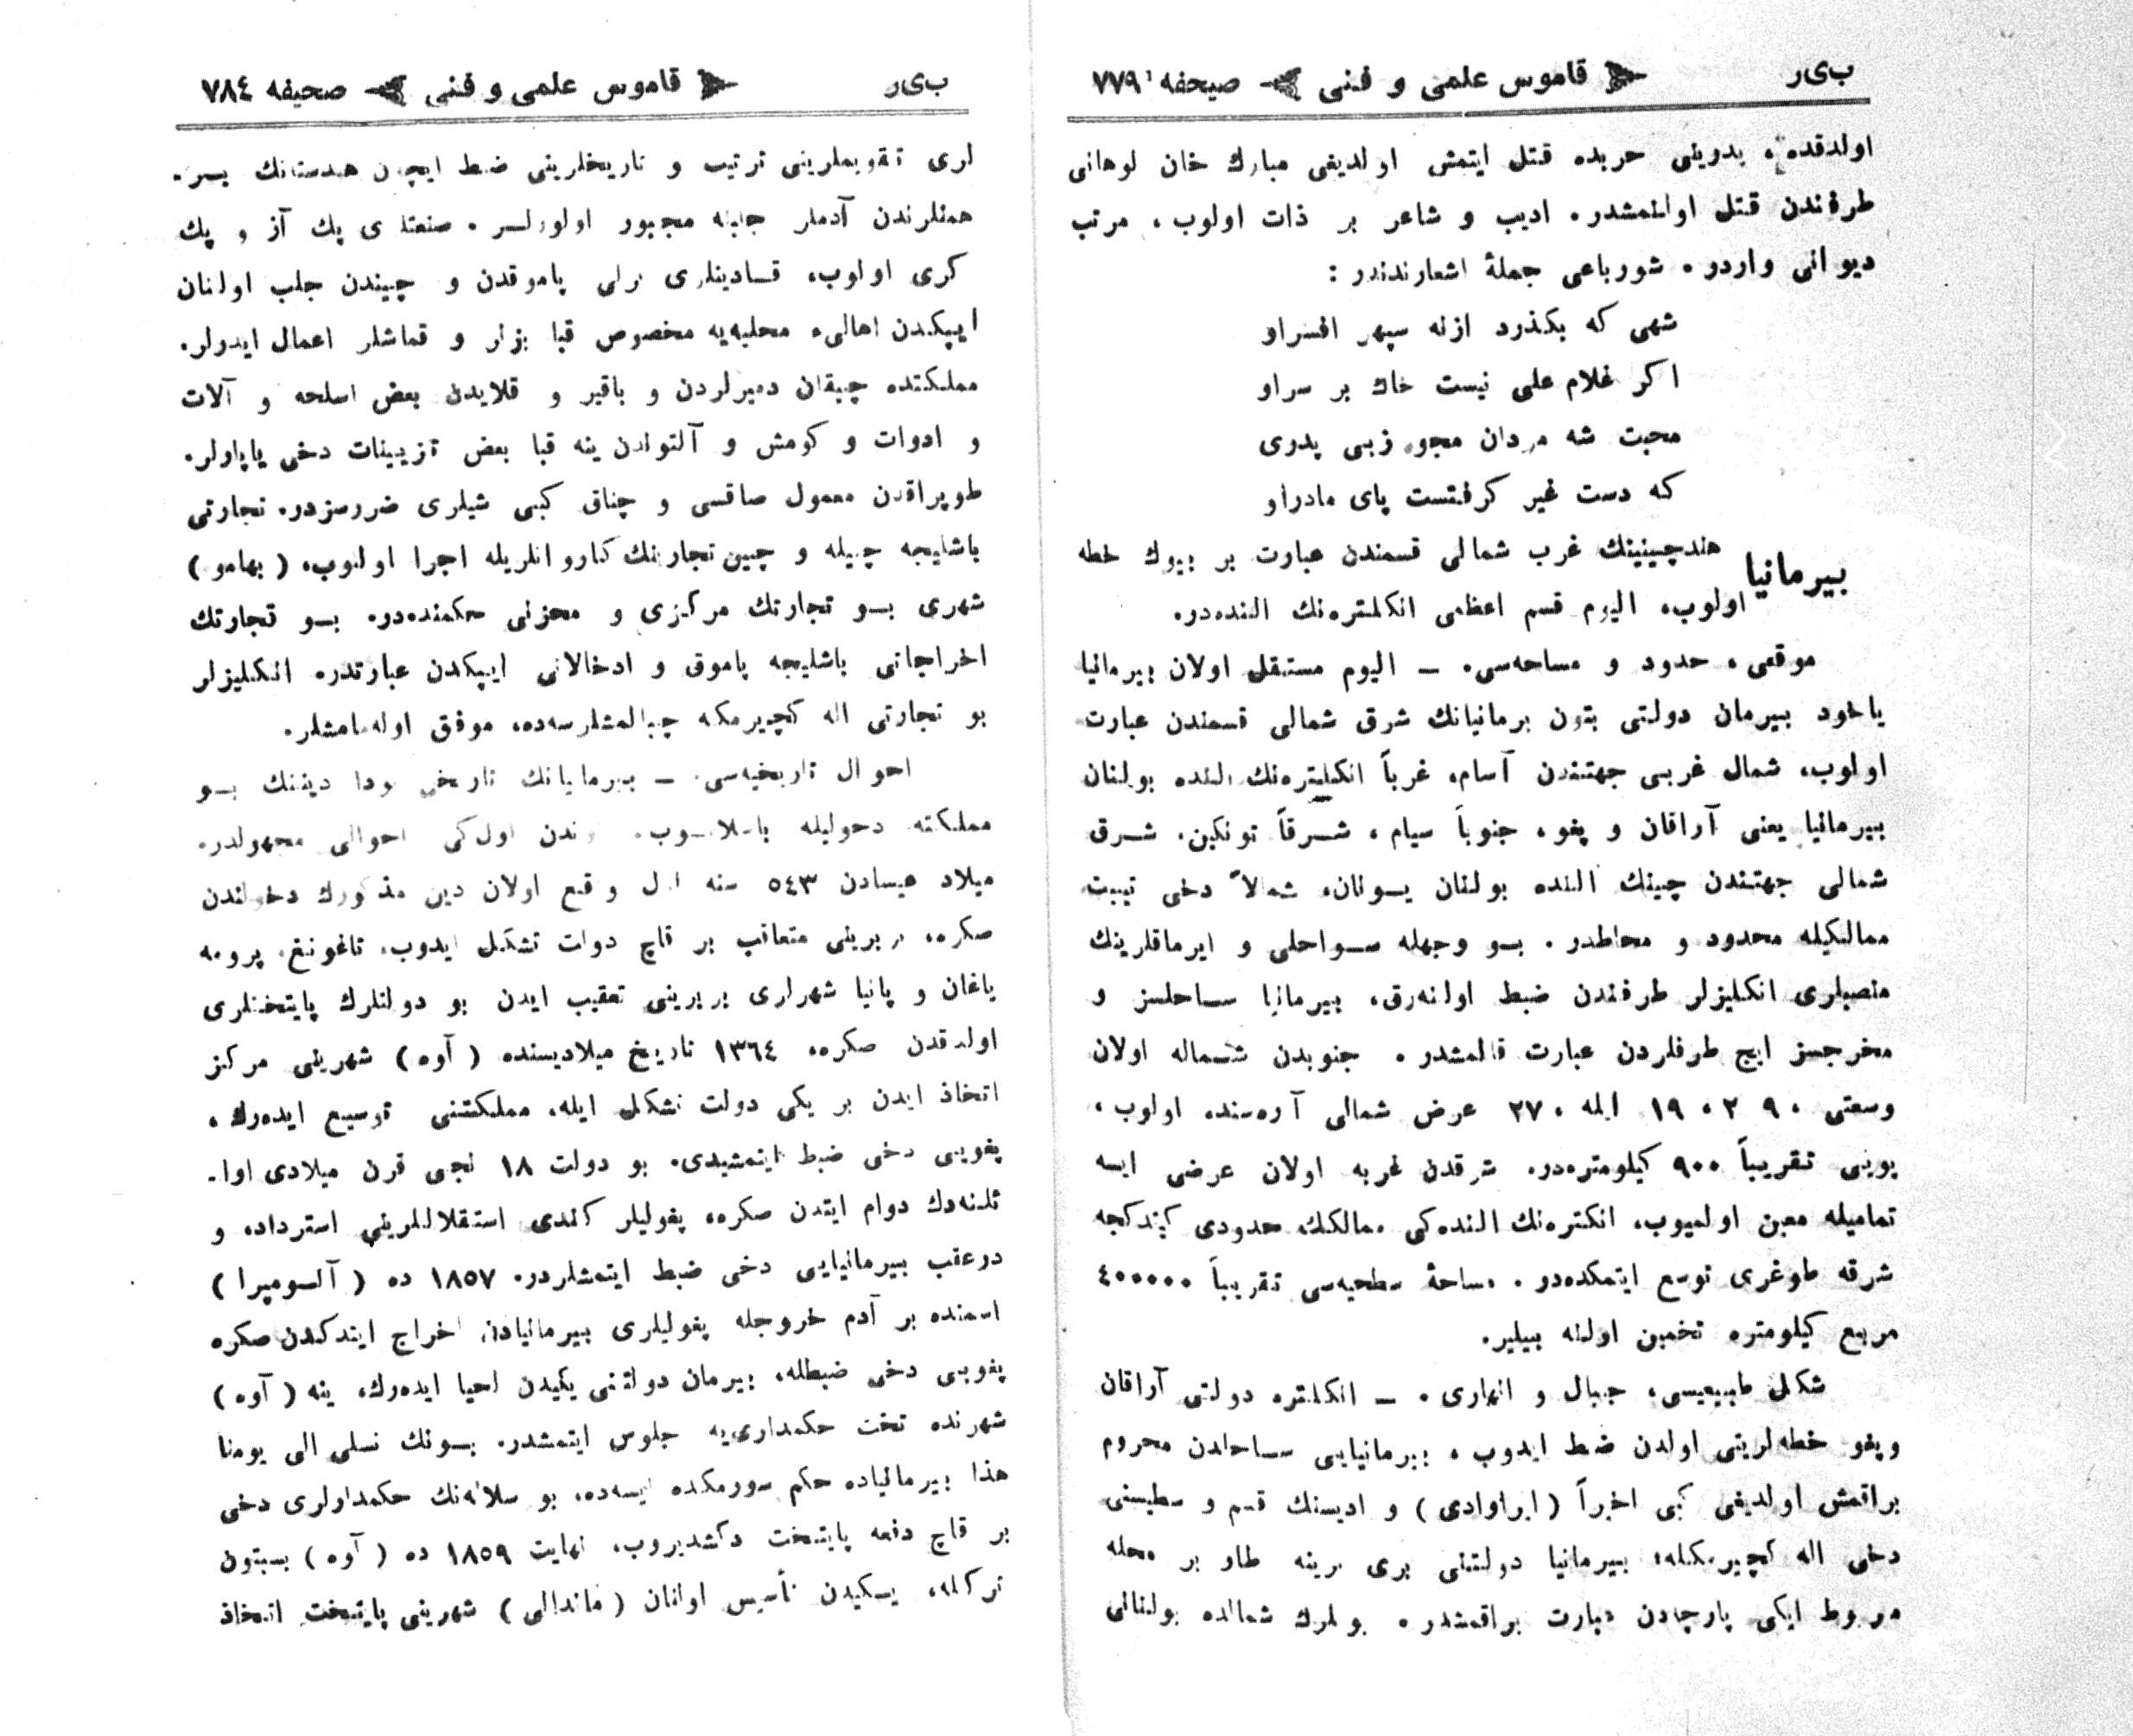 ب‌ی‌ر قاموس علمی و فنی صیحفه ٧٧٩
اولدقده، بدرینی حربده قتل ایتمش اولدیغی مبارك خان لوهانی
طرفندن قتل اولنمشدر. ادیب و شاعر بر ذات اولوب، مرتب
دیوانی واردر. شورباعی جملهٔ اشعارندندر :
شهی که بکذرد ازنه سپهر افسراو
اکر غلام علی نیست خاك بر سراو
محبت شه مردان مجو زبی پدری
که دست غیر کرفتست پای مادراو
بیرمانیا هندچینینك غرب شمالی قسمندن عبارت بر بیوك خطه
اولوب، الیوم قسم اعظمی انکلتره‌نك النده‌در.
موقعی، حدود و مساحه‌سی. ــ الیوم مستقل اولان بیرمانیا
یاخود بیرمان دولتی بتون برمانیانك شرق شمالی قسمندن عبارت
اولوب، شمال غربی جهتندن آسام، غرباً انکلیتره‌نك النده بولنان
بیرمانیا یعنی آراقان و پغو، جنوباً سیام، شــرقاً تونکین. شــرق
شمالی جهتندن چینك النده بولنان یــونان، شمالاً دخی تیبت
ممالکیله محدود و محاطدر. بــو وجهله ســواحلی و ایرماقلرینك
منصبلری انکلیزلر طرفندن ضبط اولنه‌رق، بیرمانیا ســاحلسز و
مخرجسز ایج طرفلردن عبارت قالمشدر. جنوبدن شــماله اولان
وسعتی ١٩ ایله ٢٧ عرض شمالی آره‌سنده اولوب،
بوینی تقریباً ٩٠٠ کیلومتره‌در. شرقدن غربه اولان عرضی ایسه
تمامیله معین اولمیوب، انکتره‌نك النده‌کی ممالکك حدودی کیتدکجه
شرقه طوغری توسع ایتمکده‌در. مساحهٔ سطحیه‌سی تقریباً ٤٠٠٠٠٠
مربع کیلومتره تخمین اولنه بیلیر.
شکل طبیعیسی، جبال و انهاری. ــ انکلتره دولتی آراقان
وپغو خطه‌لرینی اولدن ضبط ایدوب، بیرمانیایی ســاحلدن محروم
براقمش اولدیغی کبی اخیراً ( ایراوادی ) و ادیسنك قسم و سطیسنی
دخی اله کچیرمکله، بیرمانیا دولتنی بری برینه طار بر محله
مربوط ایکی پارچادن عبارت براقمشدر. بولرك شمالده بولنانی
ب‌ی‌ر قاموس علمی و فنی صحیفه ٧٨٤
لری تقویملرینی ترتیب و تاریخلرینی ضبط ایچون هندستانك بــر.
همنلرندن آدملر جلبنه مجبور اولورلــر. صنعتلری پك آز و پك
کری اولوب، قــادینلری یرلی پاموقدن و چیندن جلب اولنان
ایپکدن اهالیء محلیه‌یه مخصوص قبا بزلر و قماشلر اعمال ایدرلر.
مملکتده چیقان دمیرلردن و باقیر و قلایدن بعض اسلحه و آلات
و ادوات و کومش و آلتوندن ینه قبا بعض تزیینات دخی یاپارلر.
طوپراقدن معمول صاقسی و چناق کبی شیلری ضررسزدر. تجارتی
باشلیجه چیله و چین تجارینك کاروانلریله اجرا اولنوب، ( بهامو )
شهری بــو تجارتك مرکزی و مخزنی حکمنده‌در. بــو تجارتك
اخراجاتی باشلیجه پاموق و ادخالاتی ایپکدن عبارتدر. انکلیزلر
بو تجارتی اله کچیرمکه چبالمشلرسه‌ده، موفق اوله‌مامشلر.
احوال تاریخیه‌سی. ــ بیرمایانك تاریخی بودا دیننك بــو
مملکته دخولیله باشلایــوب، اولکی احوالی مجهولدر.
میلاد عیسادن ٥٤٣ سنه اول وقع اولان دین مذکورك دخولندن
صکره، بربرینی متعاقب بر قاچ دولت تشکل ایدوب، تاغونغ، پرومه
یاغان و پانیا شهرلری بربرینی تعقیب ایدن بو دولتلرك پایتختلری
اولدقدن صکره، ١٣٦٤ تاریخ میلادیسنده ( آوه ) شهرینی مرکز
اتخاذ ایدن بر یکی دولت تشکل ایله، مملکتنی توسیع ایده‌رك،
پغویی دخی ضبط ایتمشیدی. بو دولت ١٨ نجی قرن میلادی اوا-
ئلنه‌دك دوام ایتدن صکره، پغولیلر کندی استقلاللرینی استرداد، و
درعقب بیرمانیایی دخی ضبط ایتمشلردر. ١٨٥٧ ده ( آلسومپرا )
اسمنده بر آدم خروجله پغولیلری بیرمانیادن اخراج ایتدکدن صکره
پغویی دخی ضبطله، بیرمان دولتنی یکیدن احیا ایده‌رك، ینه ( آوه )
شهرنده تخت حکمداری‌یه جلوس ایتمشدر. بــونك نسلی الی یومنا
هذا بیرمانیاده حکم سورمکده ایسه‌ده، بو سلاله‌نك حکمدارلری دخی
بر قاچ دفعه پایتخت دکشدیروب، نهایت ١٨٥٩ ده ( آوه ) بسبتون
ترکله، یسکیدن تأسیس اولنان ( ماندالی ) شهرینی پایتخت اتخاذ